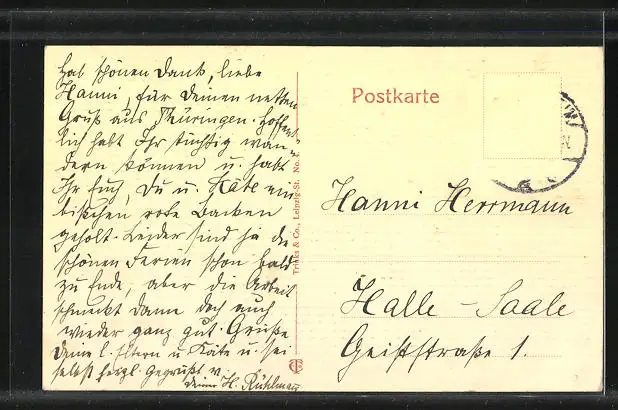 Hab schönen Dank, liebe
Hanni, für Deinen netten
Gruß aus Thüringen. Hoffent-
lich habt Ihr tüchtig wan-
dern können u. habt
Ihr Euch, Du u. Käte ein
bißchen rote Backen
geholt. Leider sind ja die
schönen Ferien schon bald
zu Ende, aber die Arbeit
schmeckt dann doch auch
wieder ganz gut. Grüße
Deine l. Eltern u. Käte u. sei
selbst herzl. gegrüßt v.
Deiner H. Rühlmann
Trinks & Co., Leipzig-St. No. 
Postkarte
Hanni Herrmann
Halle - Saale
Geiststraße 1.